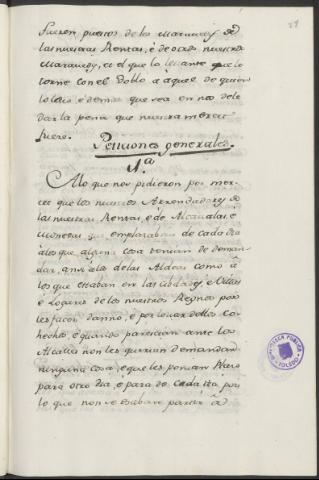 fueren puestos de los Maravedis de
las nuestras Rentas, é de otros nuestros
Maravedis, et el que lo levante que lo
torne con el doblo á aquel de quien
lo levó é demas que sea en nos de le
dar la pena que nuestra merced
fuere.
Peticiones generales
1.a
A lo que nos pidieron por mer
ced que los nuestros Arrendadores de
las nuestras Rentas, é de Alcavalas, é
monedas que emplazaban de cada dia
á los que alguna cosa tenian de deman
dar, ansi á los de las Aldeas como á
los que estaban en las Cibdades, é Villas
é Logares de los nuestros Regnos por
les facer danno, é por levar dellos Co
hechos, é quando parescian ante los
Alcalles non les querian demandar
ninguna cosa, é que les ponian Plazo
para otro dia, é para de cada dia, por
lo que non se osaban partir á
BIBLIOTECA PUBLICA
TOLEDO